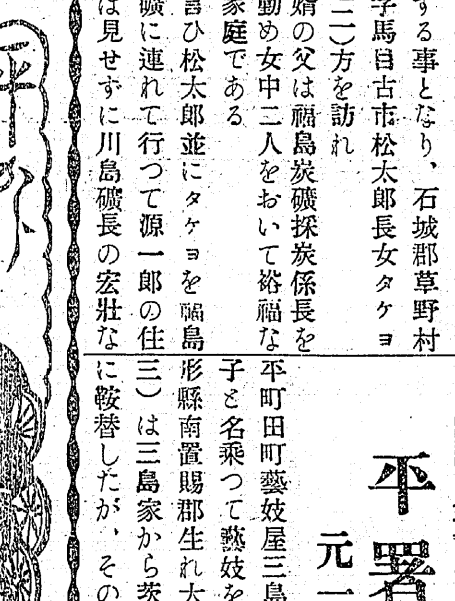 する事となり、石城郡草野村
字馬目古市松太郎長女タケヨ
二)方を訪れ
婿の父は福島炭礦採炭係長を
勤め女中二人をおいて裕福な
家庭である
言ひ松太郎並にタケヨを福島
礦に連れて行つて源一郎の住
は見せずに川島礦長の宏壯な
平署
元一
平町田町藝妓屋三島
子と名乘つて藝妓を
形縣南置賜郡生れ大
三)は三島家から茨
に鞍替したが、その